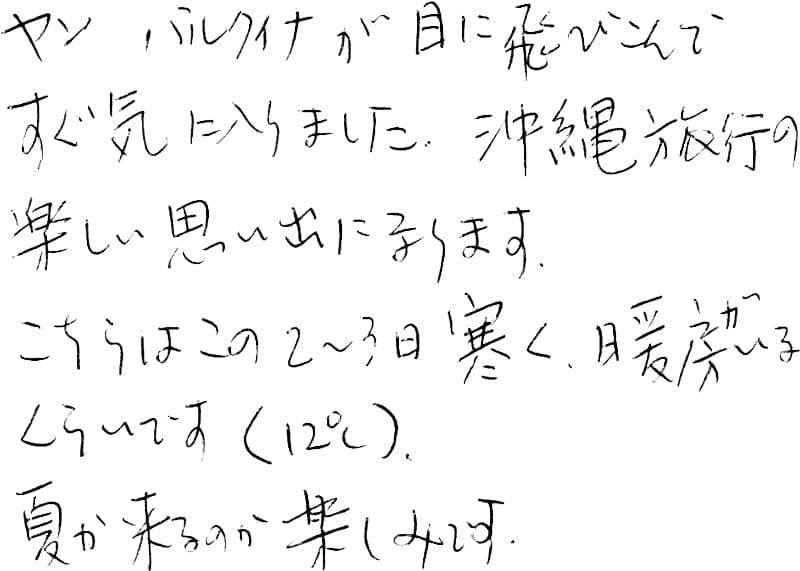 ヤンバルクイナが目に飛びこんで
すぐ気に入りました。沖縄旅行の
楽しい思い出になります。
こちらはこの2〜3日寒く、暖房がいる
くらいです(12℃)。
夏が来るのが楽しみです。